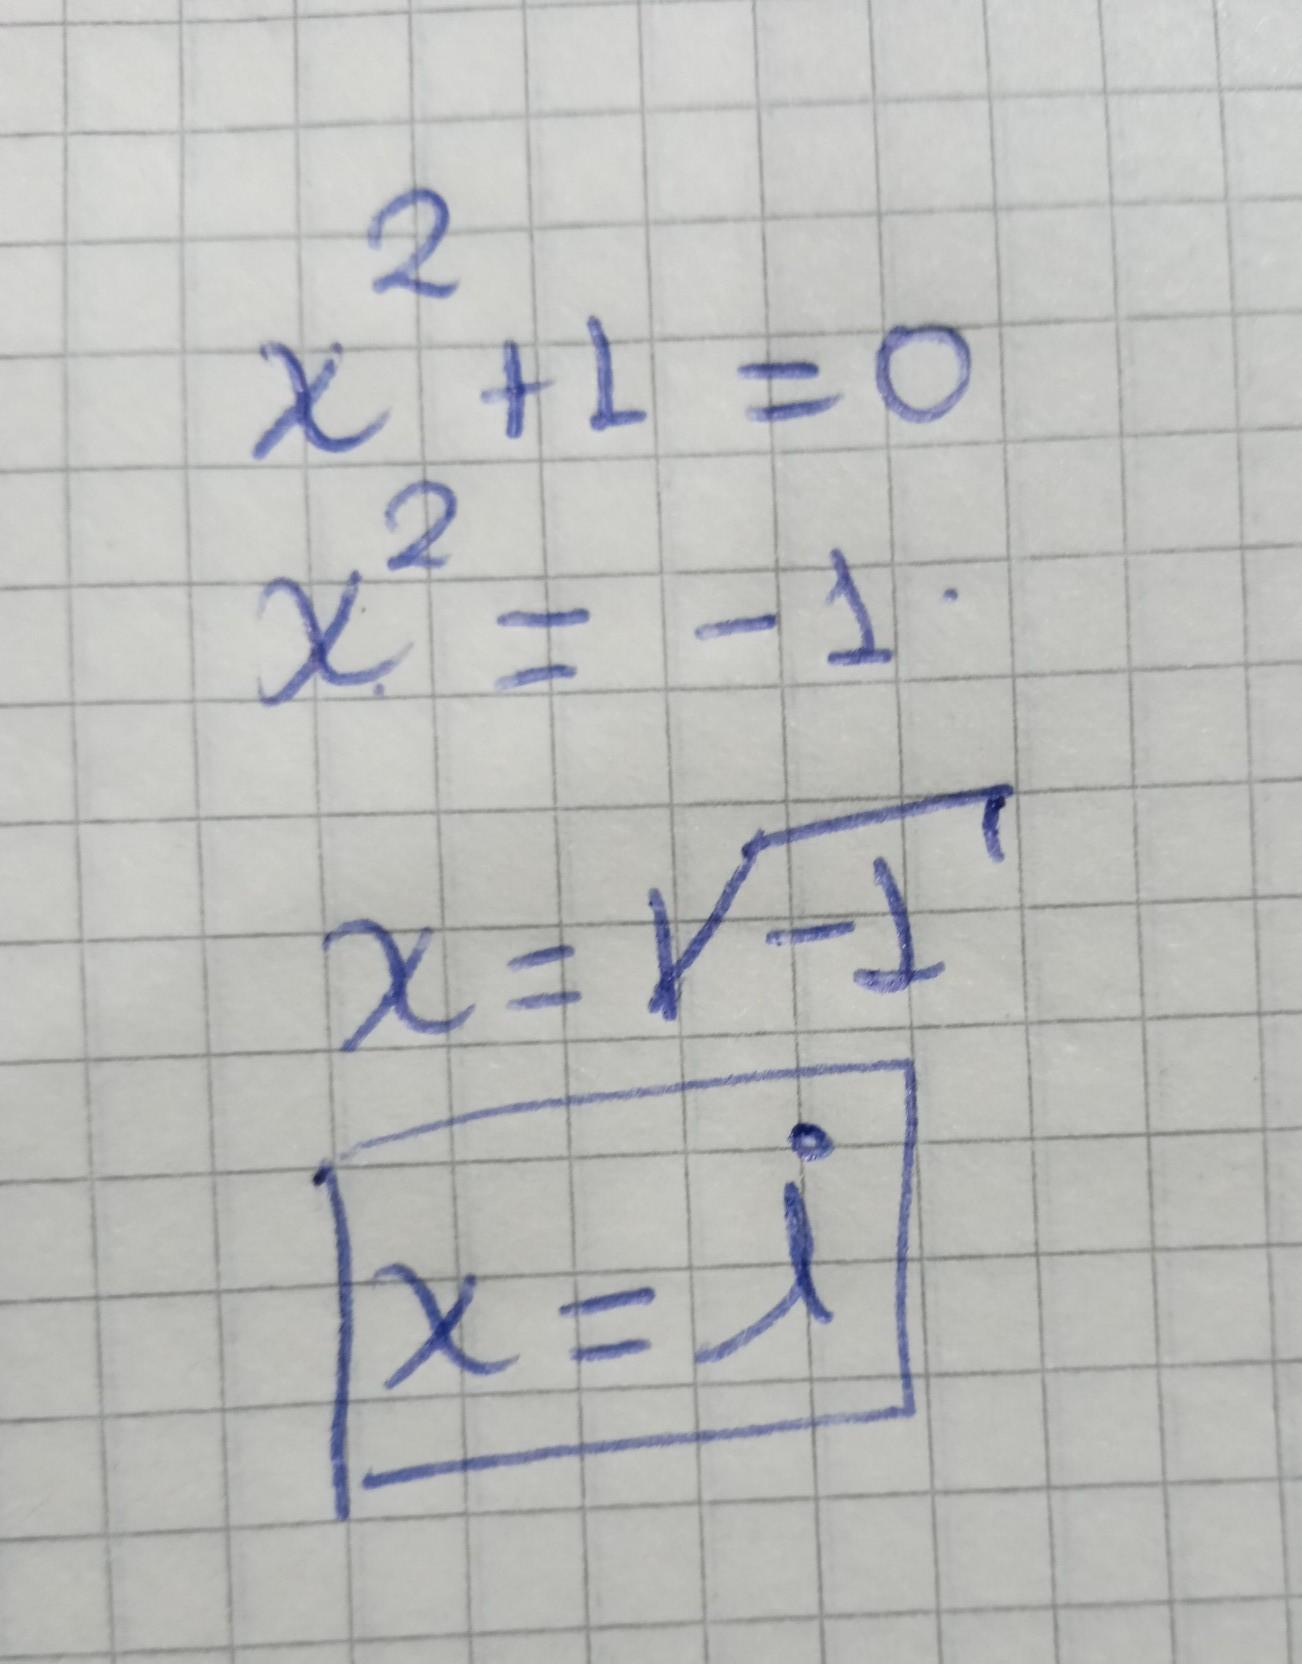 x² + 1 = 0
x² = - 1
x = √-1
x = i